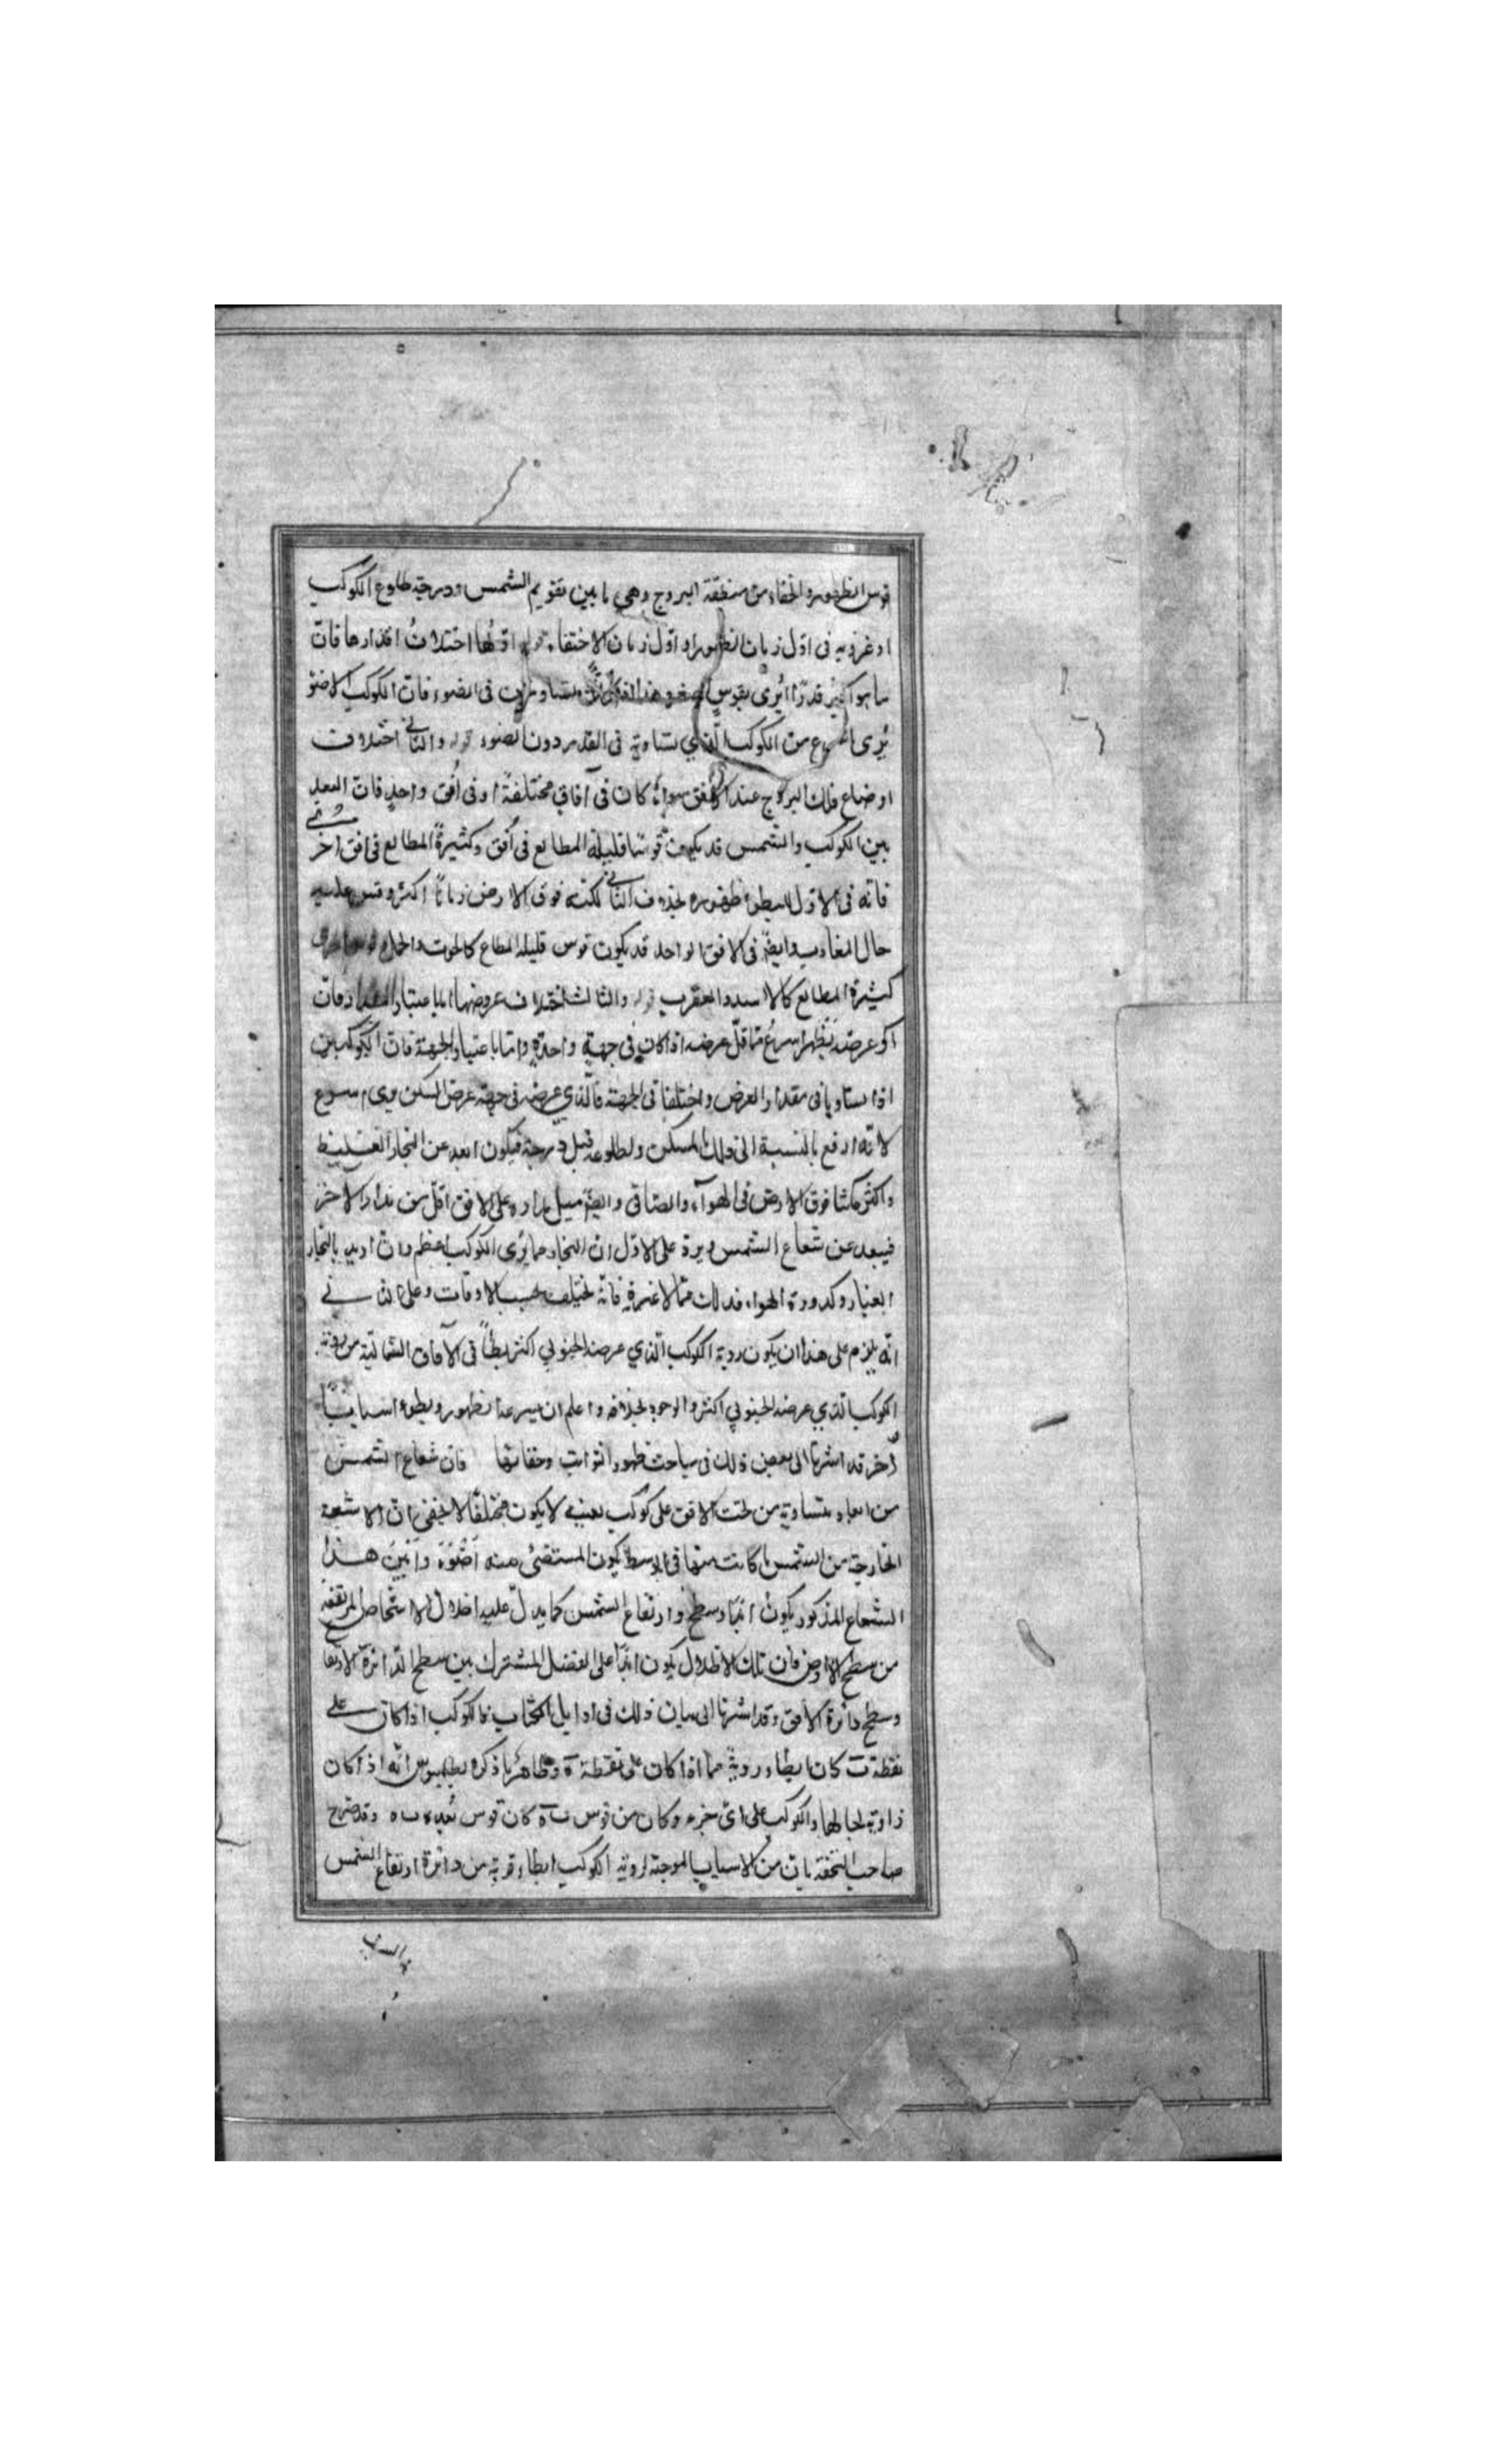 قوس الظهور والخفاء من منطقة البروج وهي ما بين تقويم الشمس ودرجة طلوع الكوكب
او غروبه فى اوّل زمان الظهور او اوّل زمان الاختفاء قوله اوّلها اختلافُ اقدارها فانّ
ما هو اكبرُ قدرًا يُرى بقوسٍ اصغر هذا متساويين فى الضوء فانّ الكوكب الاضوَ
يُرى من الكوكب الّذي يساويه فى القدر دون الضوء قوله والثانى اختلاف
اوضاع فلك البروج عند الافق سواءٌ كان فى آفاقٍ مختلفةٍ او فى اُفقٍ واحدٍ فانّ البعد
بين الكوكب والشمس قد يكون قوسًا قليلة المطالع فى اُفق وكثيرةَ المطالع فى افق آخر
فانّه فى الاوّل ابطؤ ظهوره بخلاف الثانى لمكثه فوق الارض زمانًا اكثر وقس عليه
حال المغارب وايضًا فى الافق الواحد قد يكون قوس قليلة المطالع كالحوت والحمل
كثيرة المطالع كالاسد والعقرب قوله والثالث اختلاف عروضها امّا باعتبار المقدار فانّ
عرضه يَظهر اسرعُ ممّا قلّ عرضه اذا كان فى جهةٍ واحدةٍ وامّا باعتبار الجهة فانّ الكوكبين
اذا تساويا فى مقدار العرض واختلفا فى الجهة فالّذي عرضه فى جهة عرض المسكن يرى اسرع
لانّه ارفع بالنسبة الى ذلك المسكن ولطلوعه قبل درجته فيكون ابعد عن البخار الغليظ
واكثر مكثا فوق الارض فى الهوآء الصافى وايضًا ميل مداره على الافق اقلّ من مدار الاخر
فيبعد عن شعاع الشمس ويرد على الاوّل انّ البخار ممّا يُرى الكوكب اعظم وان اريد بالبخار
الغبار وكدورة الهواء فذلك ممّا لا عبرة فيه فانّه يختلف بحسب الاوقات وعلى الثانى
انّه يلزم على هذا ان يكون روية الكوكب الّذي عرضه الجنوبي اكثر بطأً فى الآفاق الشمالية من روية
الكوكب الّذي عرضه الجنوبي اكثر والوجود بخلافه واعلم ان لسرعة الظهور وبطوءه اسبابًا
اُخر قد اشرنا الى بعض ذلك فى مباحث ظهور الثوابت وخفائها فانّ شعاع الشمس
من ابعاد متساوية من تحت الافق على كوكب بعينه لا يكون مختلفًا لا يخفى انّ الاشعة
الخارجة من الشمس ما كانت منها فى الوسط يكون المستضئ منه اَضْوَءَ واَبْيَنَ هذا
الشعاع المذكور يكونُ ابدًا وسطح ارتفاع الشمس كما يدلّ عليه اظلال الاشخاص المرتفعة
من سطح الارض فان تلك الاظلال يكون ابدًا على الفصل المشترك بين سطح الدائرة الارتفاع
وسطح دائرة الافق وقد اشرنا الى بيان ذلك فى اوايل الكتاب فالكوكب اذا كان على
نقطة ب كان ابطاء رويةً ممّا اذا كان على نقطة ة وظاهرُ ما ذكره بطلميوس انّه اذا كان
زاوية بحالها والكوكب على اىّ جزء وكان من قوس ب ة كان قوس بُعده وقد صرح
صاحب التحفة بانّ من الاسباب الموجبة لروية الكوكب ابطاء قربه من دائرة ارتفاع الشمس